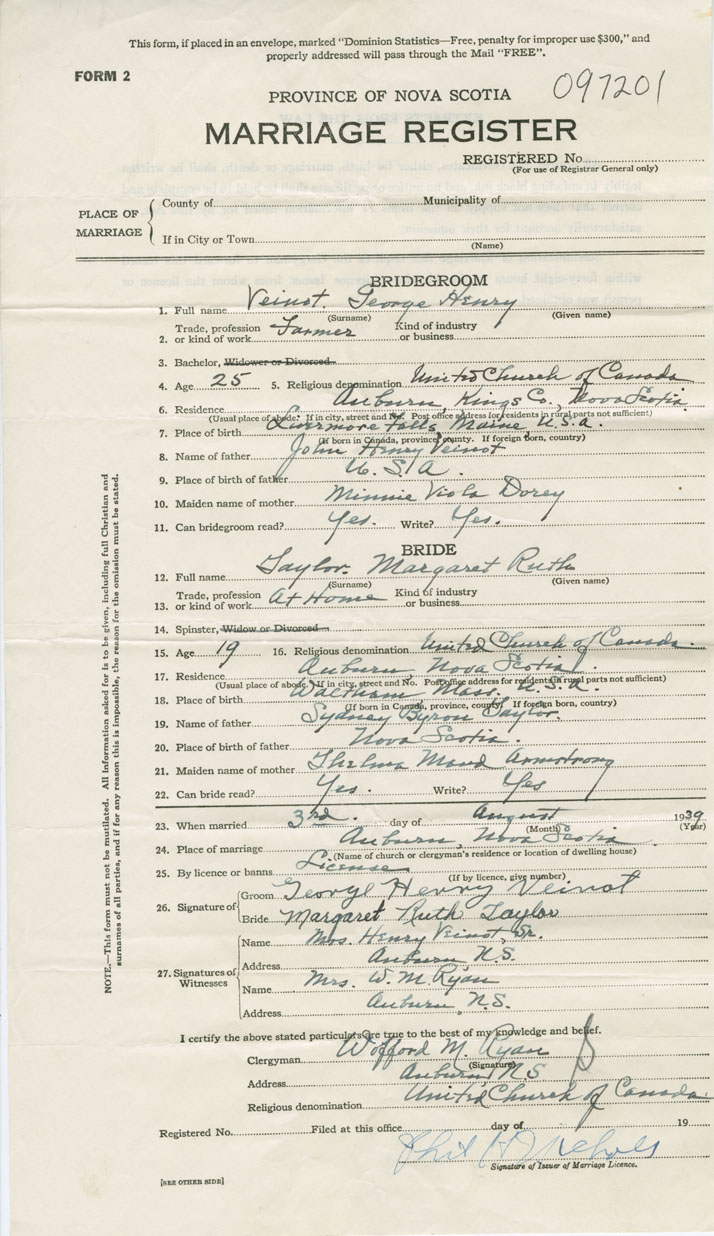 This form, if placed in an envelope, marked "Dominion Statistics—Free, penalty for improper use $300," and
properly addressed will pass through the Mail "FREE".
FORM 2
097201
PROVINCE OF NOVA SCOTIA
MARRIAGE REGISTER
REGISTERED No.
(For use of Registrar General only)
PLACE OF MARRIAGE
County of Municipality of
If in City or Town
(Name)
BRIDEGROOM
1. Full name Veinot. George Henry
(Surname) (Given name)
2. Trade, profession or kind of work Farmer Kind of industry or business
3. Bachelor, Widower or Divorced
4. Age 25 5. Religious denomination United Church of Canada
6. Residence Auburn, Kings Co., Nova Scotia.
(Usual place of abode. If in city, street and No. Post office address for residents in rural parts not sufficient)
7. Place of birth Livermore Falls, Maine U.S.A.
(If born in Canada, province, county. If foreign born, country)
8. Name of father John Henry Veinot
9. Place of birth of father U.S.A.
10. Maiden name of mother Minnie Viola Dorey
11. Can bridegroom read? Yes. Write? Yes.
BRIDE
12. Full name Taylor. Margaret Ruth
(Surname) (Given name)
13. Trade, profession or kind of work At Home Kind of industry or business
14. Spinster, Widow or Divorced
15. Age 19 16. Religious denomination United Church of Canada.
17. Residence Auburn, Nova Scotia.
(Usual place of abode. If in city, street and No. Post office address for residents in rural parts not sufficient)
18. Place of birth Waltham, Mass. U.S.A.
(If born in Canada, province, county. If foreign born, country)
19. Name of father Sydney Byron Taylor.
20. Place of birth of father Nova Scotia.
21. Maiden name of mother Thelma Maud Armstrong
22. Can bride read? Yes. Write? Yes
23. When married 3rd. day of August 1939
(Month) (Year)
24. Place of marriage Auburn, Nova Scotia
(Name of church or clergyman's residence or location of dwelling house)
25. By licence or banns License
(If by licence, give number)
26. Signature of
Groom George Henry Veinot
Bride Margaret Ruth Taylor
27. Signatures of Witnesses
Name Mrs. Henry Veinot, Sr.
Address Auburn N.S.
Name Mrs. W. M. Ryan
Address Auburn, N.S.
I certify the above stated particulars are true to the best of my knowledge and belief.
Clergyman Wofford M. Ryan
(Signature)
Address Auburn N S
Religious denomination United Church of Canada
Registered No. Filed at this office day of 19
Phil H Nichols
Signature of Issuer of Marriage Licence.
[SEE OTHER SIDE]
NOTE.—This form must not be mutilated. All information asked for is to be given, including full Christian and
surnames of all parties, and if for any reason this is impossible, the reason for the omission must be stated.